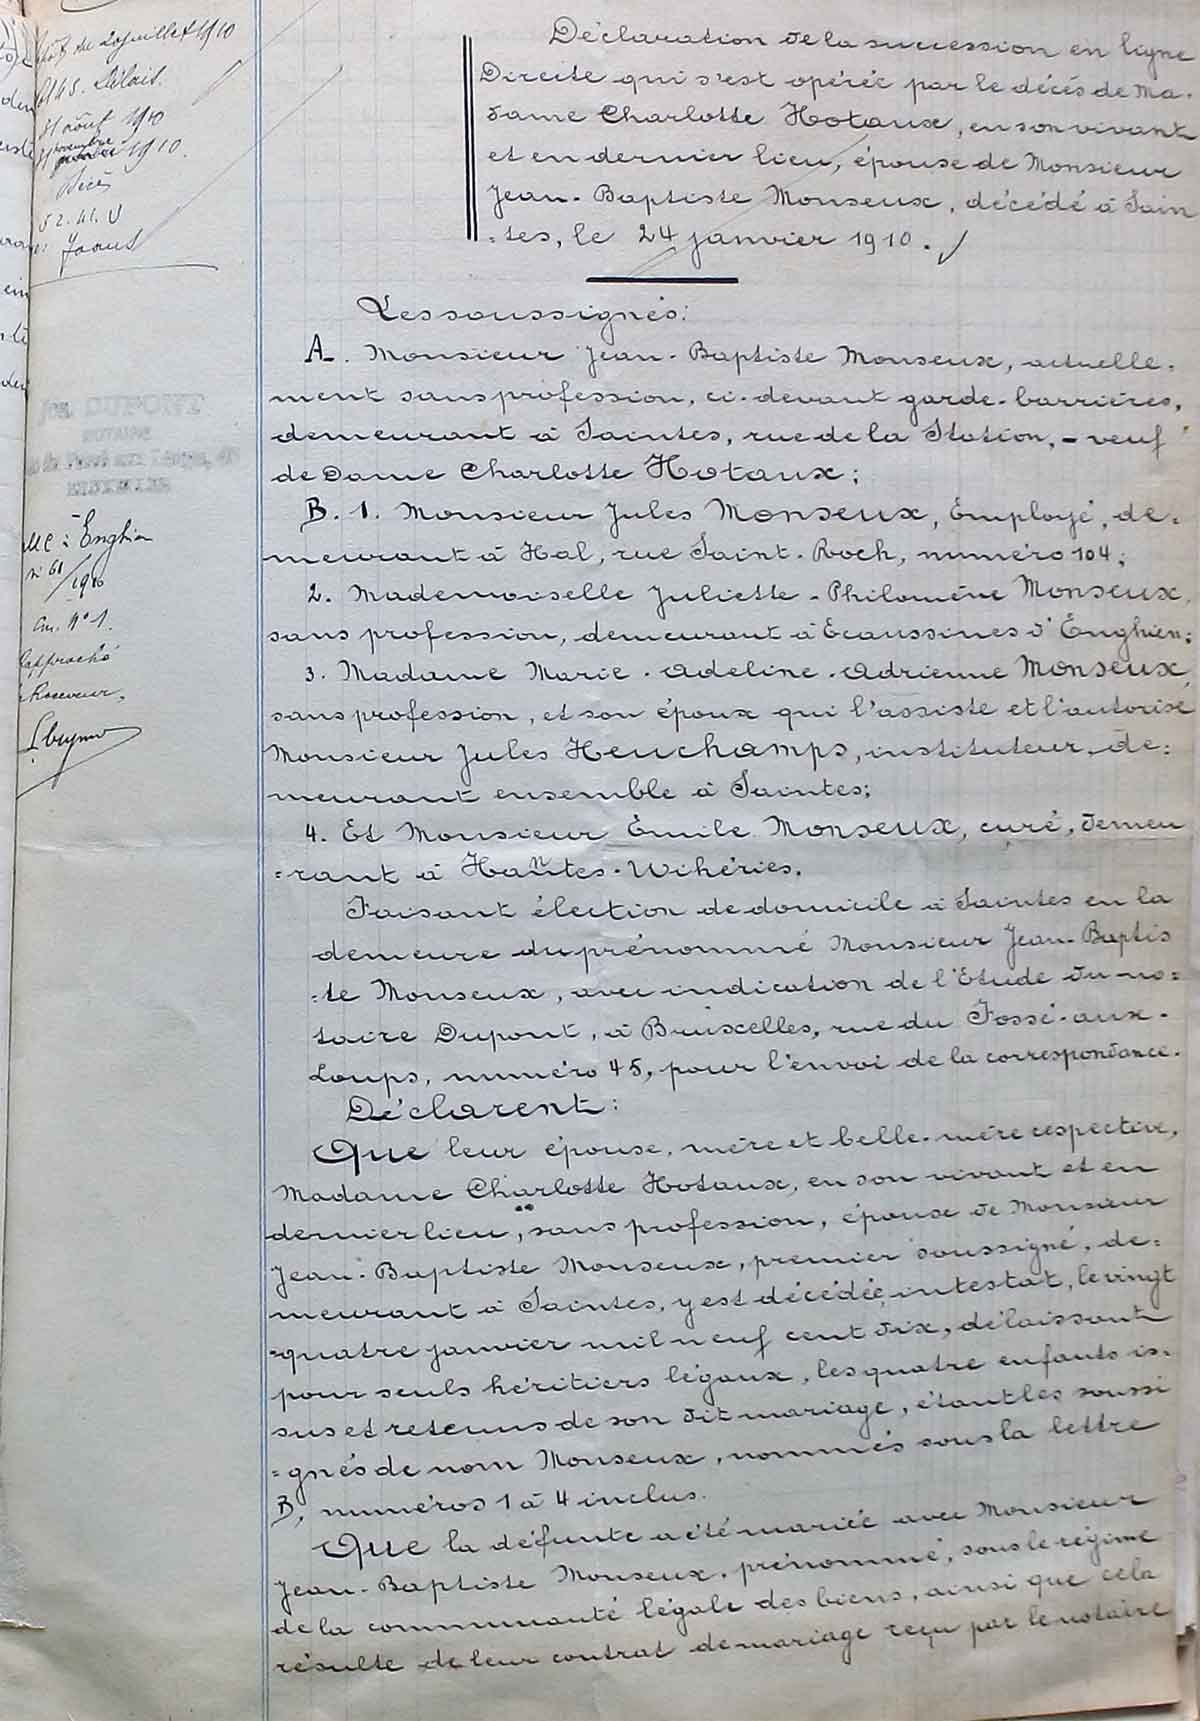 du 20 juillet 1910
45. Délais.
31 août 1910
1910.
52. 41. U
JOS. DUPONT
NOTAIRE
BRUXELLES
Enghien
n° 61
1910
n° 1.
Receveur,
Déclaration de la succession en ligne
Directe qui s'est opérée par le décès de Ma-
dame Charlotte Hotaux, en son vivant
et en dernier lieu, épouse de Monsieur
Jean-Baptiste Monseux, décédé à Sain
=tes, le 24 janvier 1910.
Les soussignés:
A. Monsieur Jean-Baptiste Monseux, actuelle=
ment sans profession, ci-devant garde-barrières,
demeurant à Saintes, rue de la Station, - veuf
de Dame Charlotte Hotaux;
B. 1. Monsieur Jules Monseux, Employé, de=
meurant à Hal, rue Saint-Roch, numéro 104;
2. Mademoiselle Juliette-Philomène Monseux,
sans profession, demeurant à Ecaussines d'Enghien;
3. Madame Marie-Adeline-Adrienne Monseux,
sans profession, et son époux qui l'assiste et l'autorise
Monsieur Jules Heuchamps, instituteur, de=
meurant ensemble à Saintes;
4. Et Monsieur Émile Monseux, curé, demeu
=rant à Hantes-Wihéries.
Faisant élection de domicile à Saintes en la
demeure du prénommé Monsieur Jean-Baptis
=te Monseux, avec indication de l'Etude du no=
taire Dupont, à Bruxelles, rue du Fossé-aux-
Loups, numéro 45, pour l'envoi de la correspondance.
Déclarent:
Que leur épouse, mère et belle-mère respective,
Madame Charlotte Hotaux, en son vivant et en
dernier lieu, sans profession, épouse de Monsieur
Jean-Baptiste Monseux, premier soussigné, de=
meurant à Saintes, y est décédée, intestat, le vingt
=quatre janvier mil neuf cent dix, délaissant
pour seuls héritiers légaux, les quatre enfants is=
sus et retenus de son dit mariage, étant les soussi
=gnés de nom Monseux, nommés sous la lettre
B, numéros 1 à 4 inclus.
Que la défunte a été mariée avec Monsieur
Jean-Baptiste Monseux, prénommé, sous le régime
de la communauté légale des biens, ainsi que cela
résulte de leur contrat de mariage reçu par le notaire